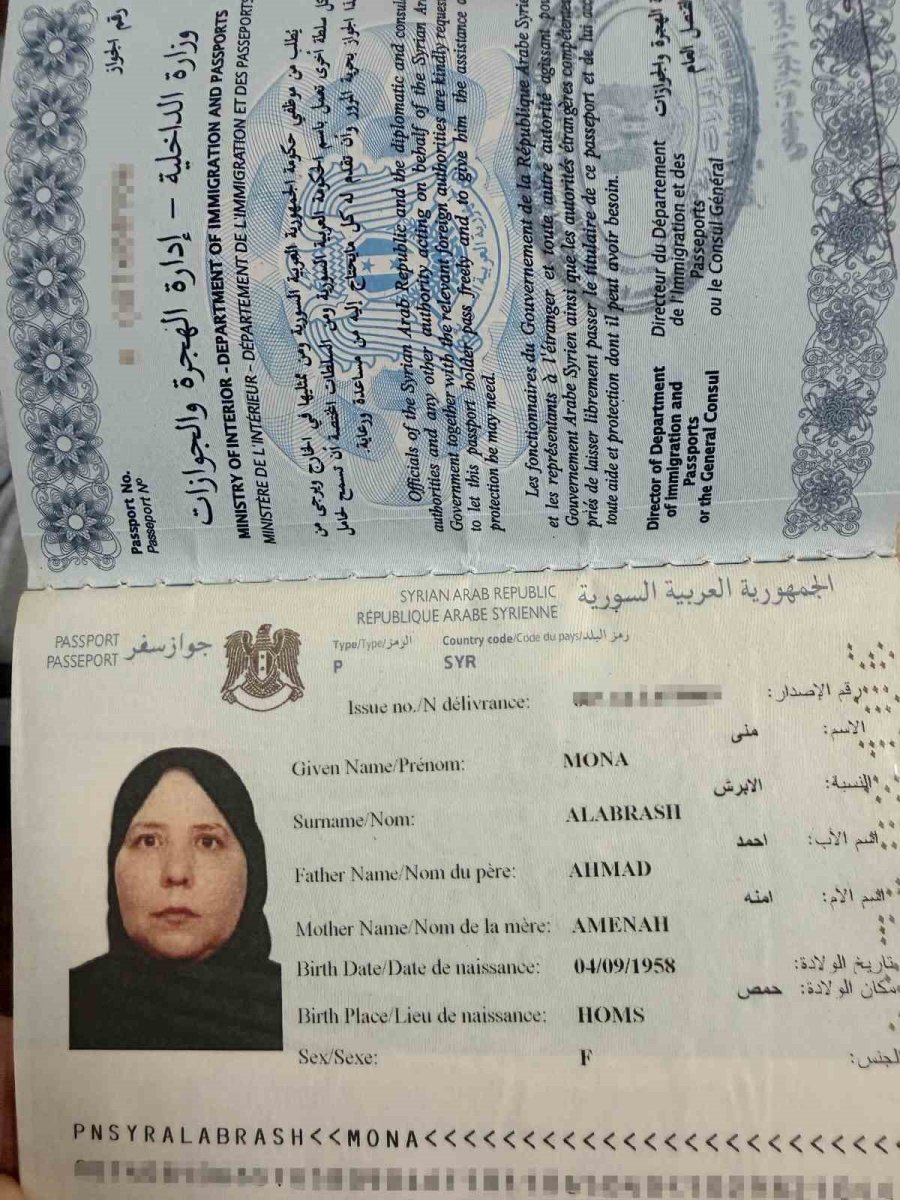 رقم الجواز
Passport No.
Passeport Nº
وزارة الداخلية – إدارة الهجرة والجوازات
MINISTRY OF INTERIOR - DEPARTMENT OF IMMIGRATION AND PASSPORTS
MINISTÈRE DE L'INTÉRIEUR - DÉPARTEMENT DE L'IMMIGRATION ET DES PASSEPORTS
يُطلب من موظفي حكومة الجمهورية العربية السورية ومن ممثليها في الخارج ويرجى من
كل سلطة أخرى تعمل باسم الحكومة العربية السورية ومن السلطات المختصة أن تسمح لحامل
هذا الجواز بحرية المرور وأن تقدم له كل مايحتاج إليه من مساعدة ورعاية.
Officials of the Syrian Arab Republic and the diplomatic and consul
authorities and any other authority acting on behalf of the Syrian Ar
Government together with the relevant foreign authorities are kindly reques
to let this passport holder pass freely and to give him the assistance
protection he may need.
Les fonctionnaires du Gouvernement de la République Arabe Syrie
et les représentants à l'étranger et toute autre autorité agissant pou
Gouvernement Arabe Syrien ainsi que les autorités étrangères compétente
priés de laisser librement passer le titulaire de ce passeport et de lui acc
toute aide et protection dont il peut avoir besoin.
Director of Department
of Immigration and
Passports
or the General Consul
Directeur du Département
de l'Immigration et des
Passeports
ou le Consul Général
الهجرة والجوازات
القنصل العام
SYRIAN ARAB REPUBLIC
RÉPUBLIQUE ARABE SYRIENNE
الجمهورية العربية السورية
PASSPORT
PASSEPORT
جواز سفر
Type/Type/الرمز:
Country code/Code du pays/رمز البلد:
P
SYR
Issue no./N délivrance:
رقم الإصدار:
الاسم: منى
Given Name/Prénom: MONA
النسبة: الابرش
Surname/Nom: ALABRASH
اسم الأب: احمد
Father Name/Nom du père: AHMAD
اسم الأم: امنه
Mother Name/Nom de la mère: AMENAH
Birth Date/Date de naissance: 04/09/1958 تاريخ الولادة:
مكان الولادة: حمص
Birth Place/Lieu de naissance: HOMS
Sex/Sexe: F الجنس:
PNSYRALABRASH<<MONA<<<<<<<<<<<<<<<<<<<<<<<<<